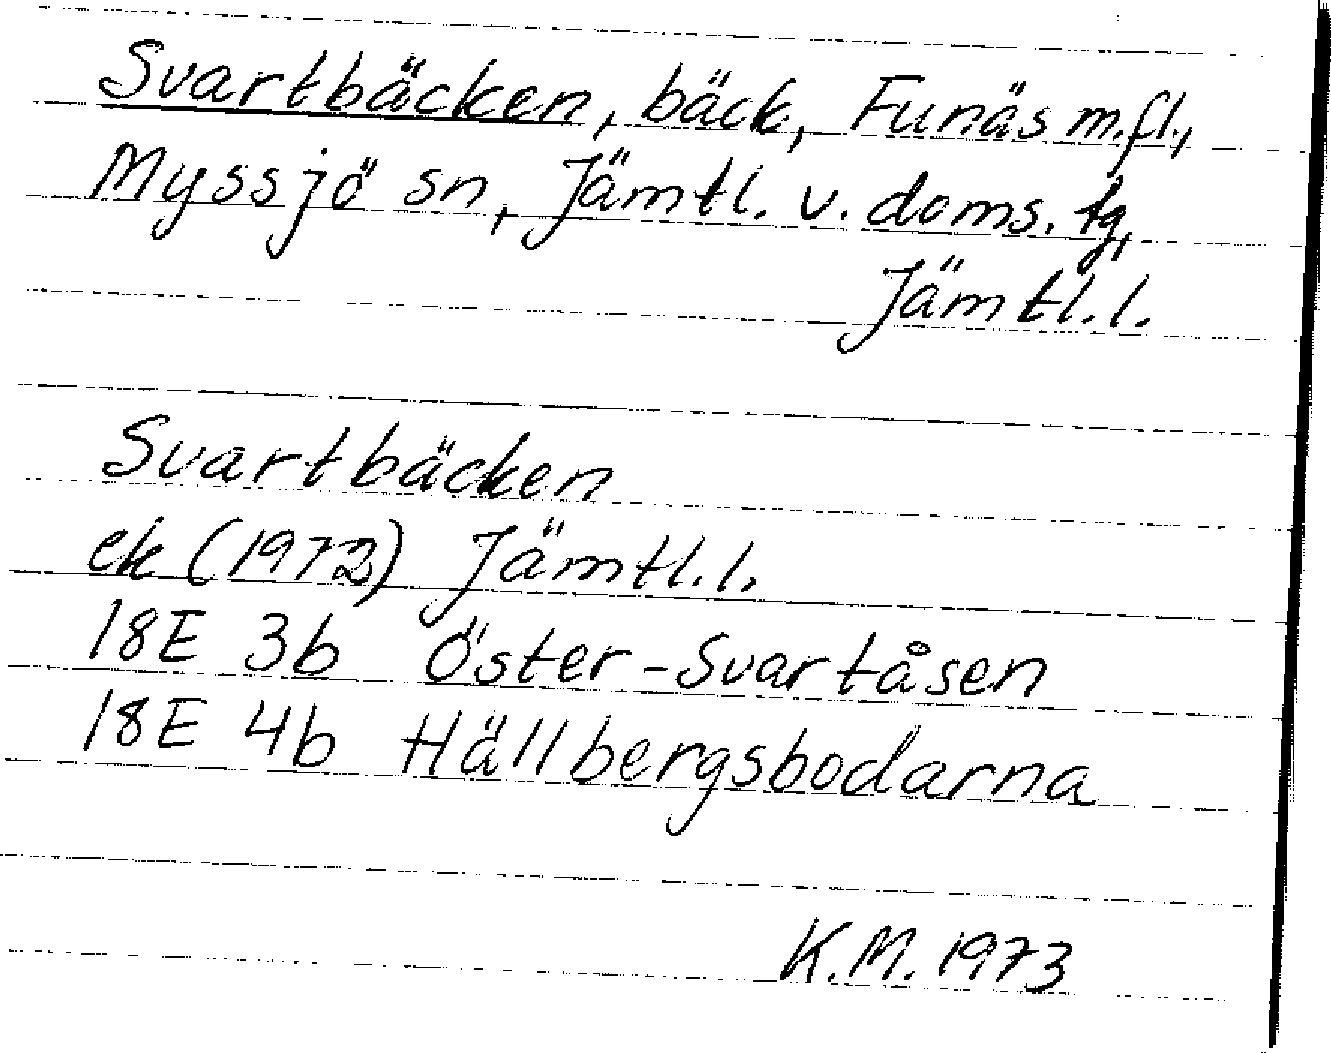 Svartbäcken, bäck, Funäs m.fl.,
Myssjö sn, Jämtl. v. doms. tg,
Jämtl.l.
Svartbäcken
ek (1972) Jämtl.l.
18E 3b Öster-Svartåsen
18E 4b Hällbergsbodarna
K.M. 1973